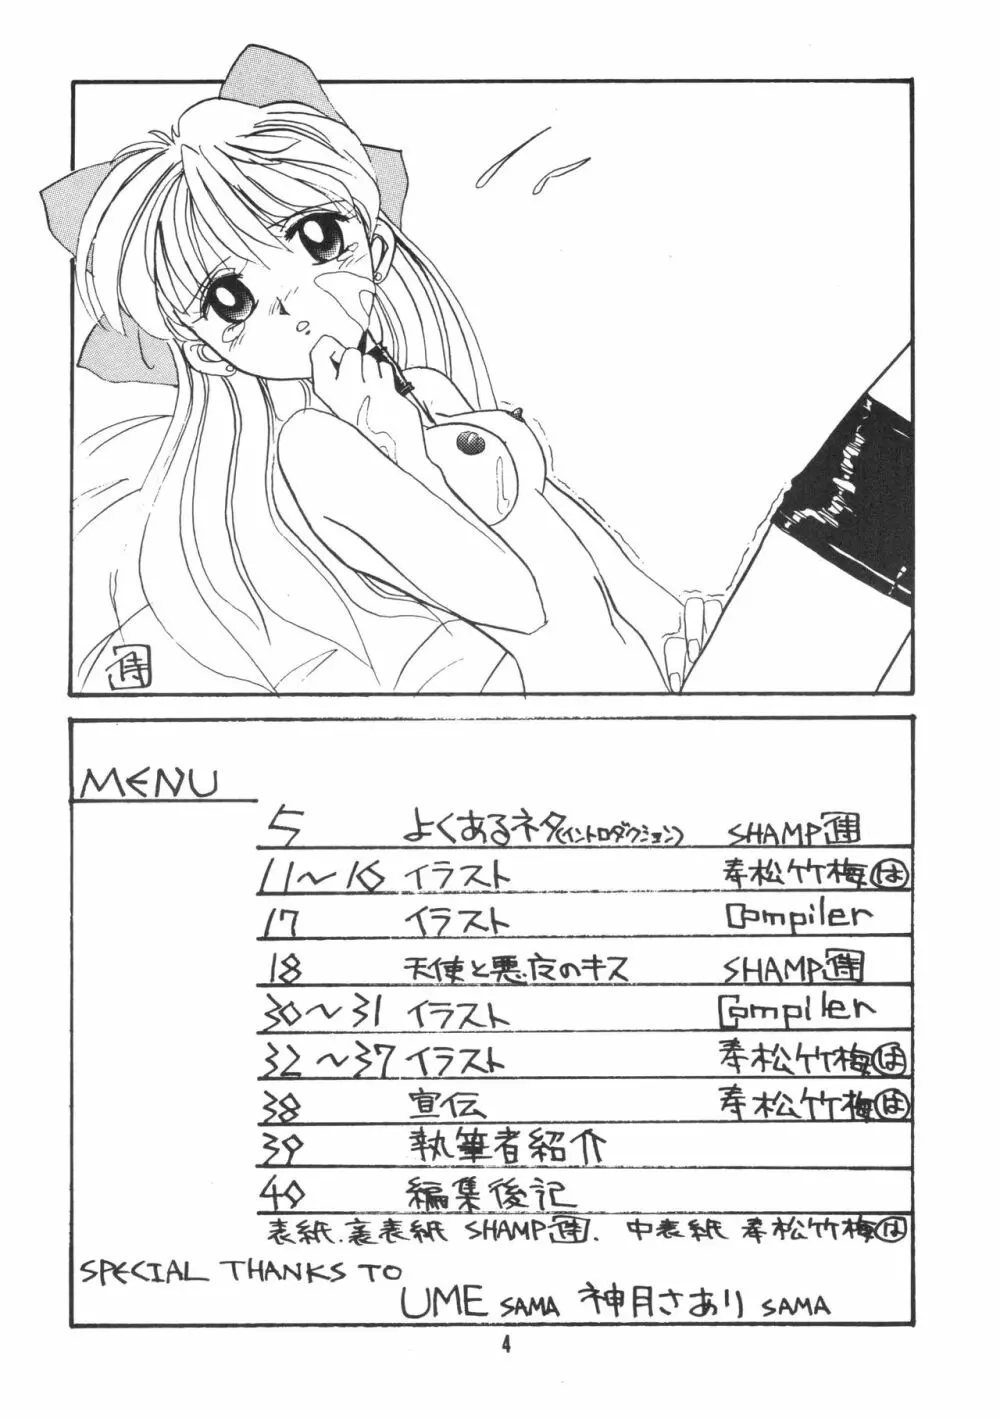 MENU
5 よくあるネタ(イントロダクション) SHAMP侍
11〜16 イラスト 奉松竹梅は
17 イラスト Compiler
18 天使と悪夜のキス SHAMP侍
30〜31 イラスト Compiler
32〜37 イラスト 奉松竹梅は
38 宣伝 奉松竹梅は
39 執筆者紹介
40 編集後記
表紙.裏表紙 SHAMP侍. 中表紙 奉松竹梅は
SPECIAL THANKS TO
UME SAMA 神月さあり SAMA
4